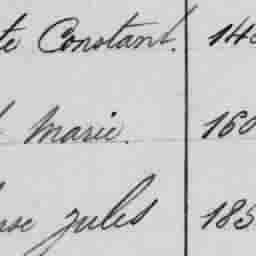 te Constant. 140
Marie. 160
Jules 185